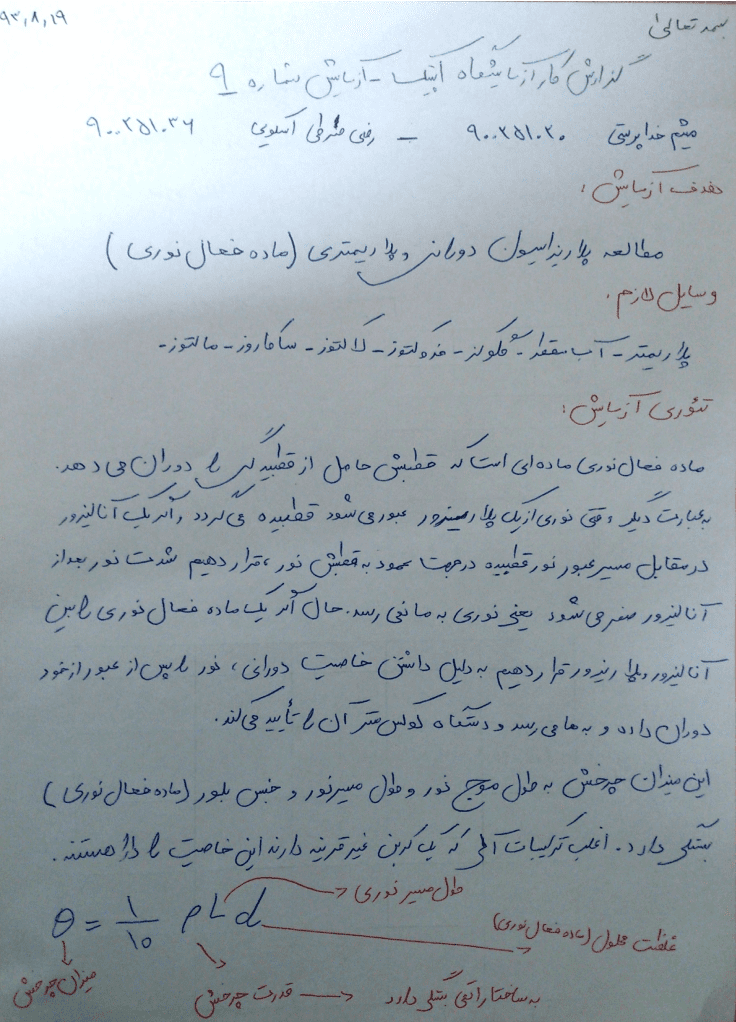 بسمه تعالی
۹۳,۸,۱۹
گزارش کار آزمایشگاه اپتیک - آزمایش شماره ۹
میثم خداپرستی ۹۰۰۲۵۱۰۲۰ - رضی شرطی ۹۰۰۲۵۱۰۳۶
هدف آزمایش:
مطالعه پلاریزاسیون دورانی و پلاریمتری (ماده فعال نوری)
وسایل لازم:
پلاریمتر - آب مقطر - گلوکز - فروکتوز - لاکتوز - ساکاروز - مالتوز -
تئوری آزمایش:
ماده فعال نوری ماده ای است که قطبش حامل از قطبیدگی را دوران می دهد.
به عبارت دیگر وقتی نوری از یک پلاریزور عبور می شود قطبیده می گردد و اگر یک آنالیزور
در مقابل مسیر عبور نور قطبیده در جهت عمود به قطبش نور، قرار دهیم شدت نور بعد از
آنالیزور صفر می شود یعنی نوری به ما نمی رسد. حال اگر یک ماده فعال نوری را بین
آنالیزور و پلاریزور قرار دهیم به دلیل داشتن خاصیت دورانی، نور را پس از عبور از خود
دوران داده و به ما می رسد و دستگاه آن را تأیید می کند.
این میزان چرخش به طول موج نور و طول مسیر نور و جنس بلور (ماده فعال نوری)
بستگی دارد. اغلب ترکیبات آلی که یک کربن غیر قرینه دارند این خاصیت را دارا هستند.
θ = ۱/۱۰ ρ L d
طول مسیر نوری
غلظت محلول (ماده فعال نوری)
میزان چرخش
قدرت چرخش
به ساختار اتمی بستگی دارد